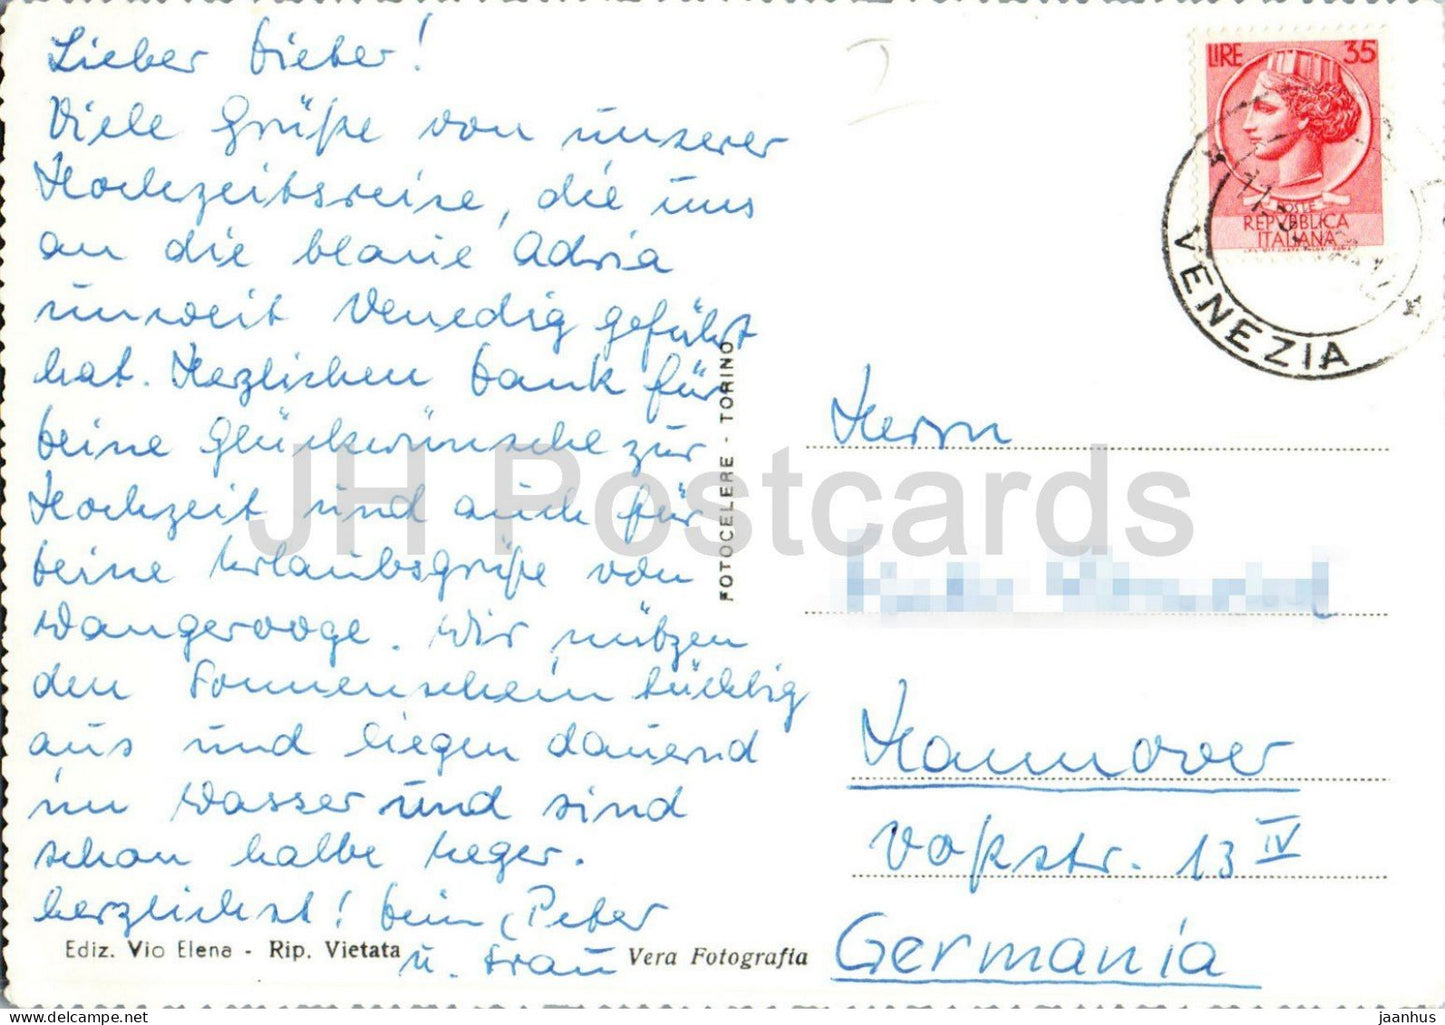 Lieber Dieter!
Viele Grüße von unserer
Hochzeitsreise, die uns
an die blaue Adria
unweit Venedig geführt
hat. Herzlichen Dank für
Deine Glückwünsche zur
Hochzeit und auch für
Deine Urlaubsgrüße von
Wangerooge. Wir nützen
den Sonnenschein tüchtig
aus und liegen dauernd
im Wasser und sind
schon halbe Neger.
herzlichst! Dein Peter
u. Frau
Ediz. Vio Elena - Rip. Vietata
Vera Fotografia
FOTOCELERE - TORINO
LIRE 35
POSTE
REPVBBLICA
ITALIANA
VENEZIA
Herrn
Hannover
Voßstr. 13 IV
Germania
JH Postcards
jaanhus — https://jhpostcards.com